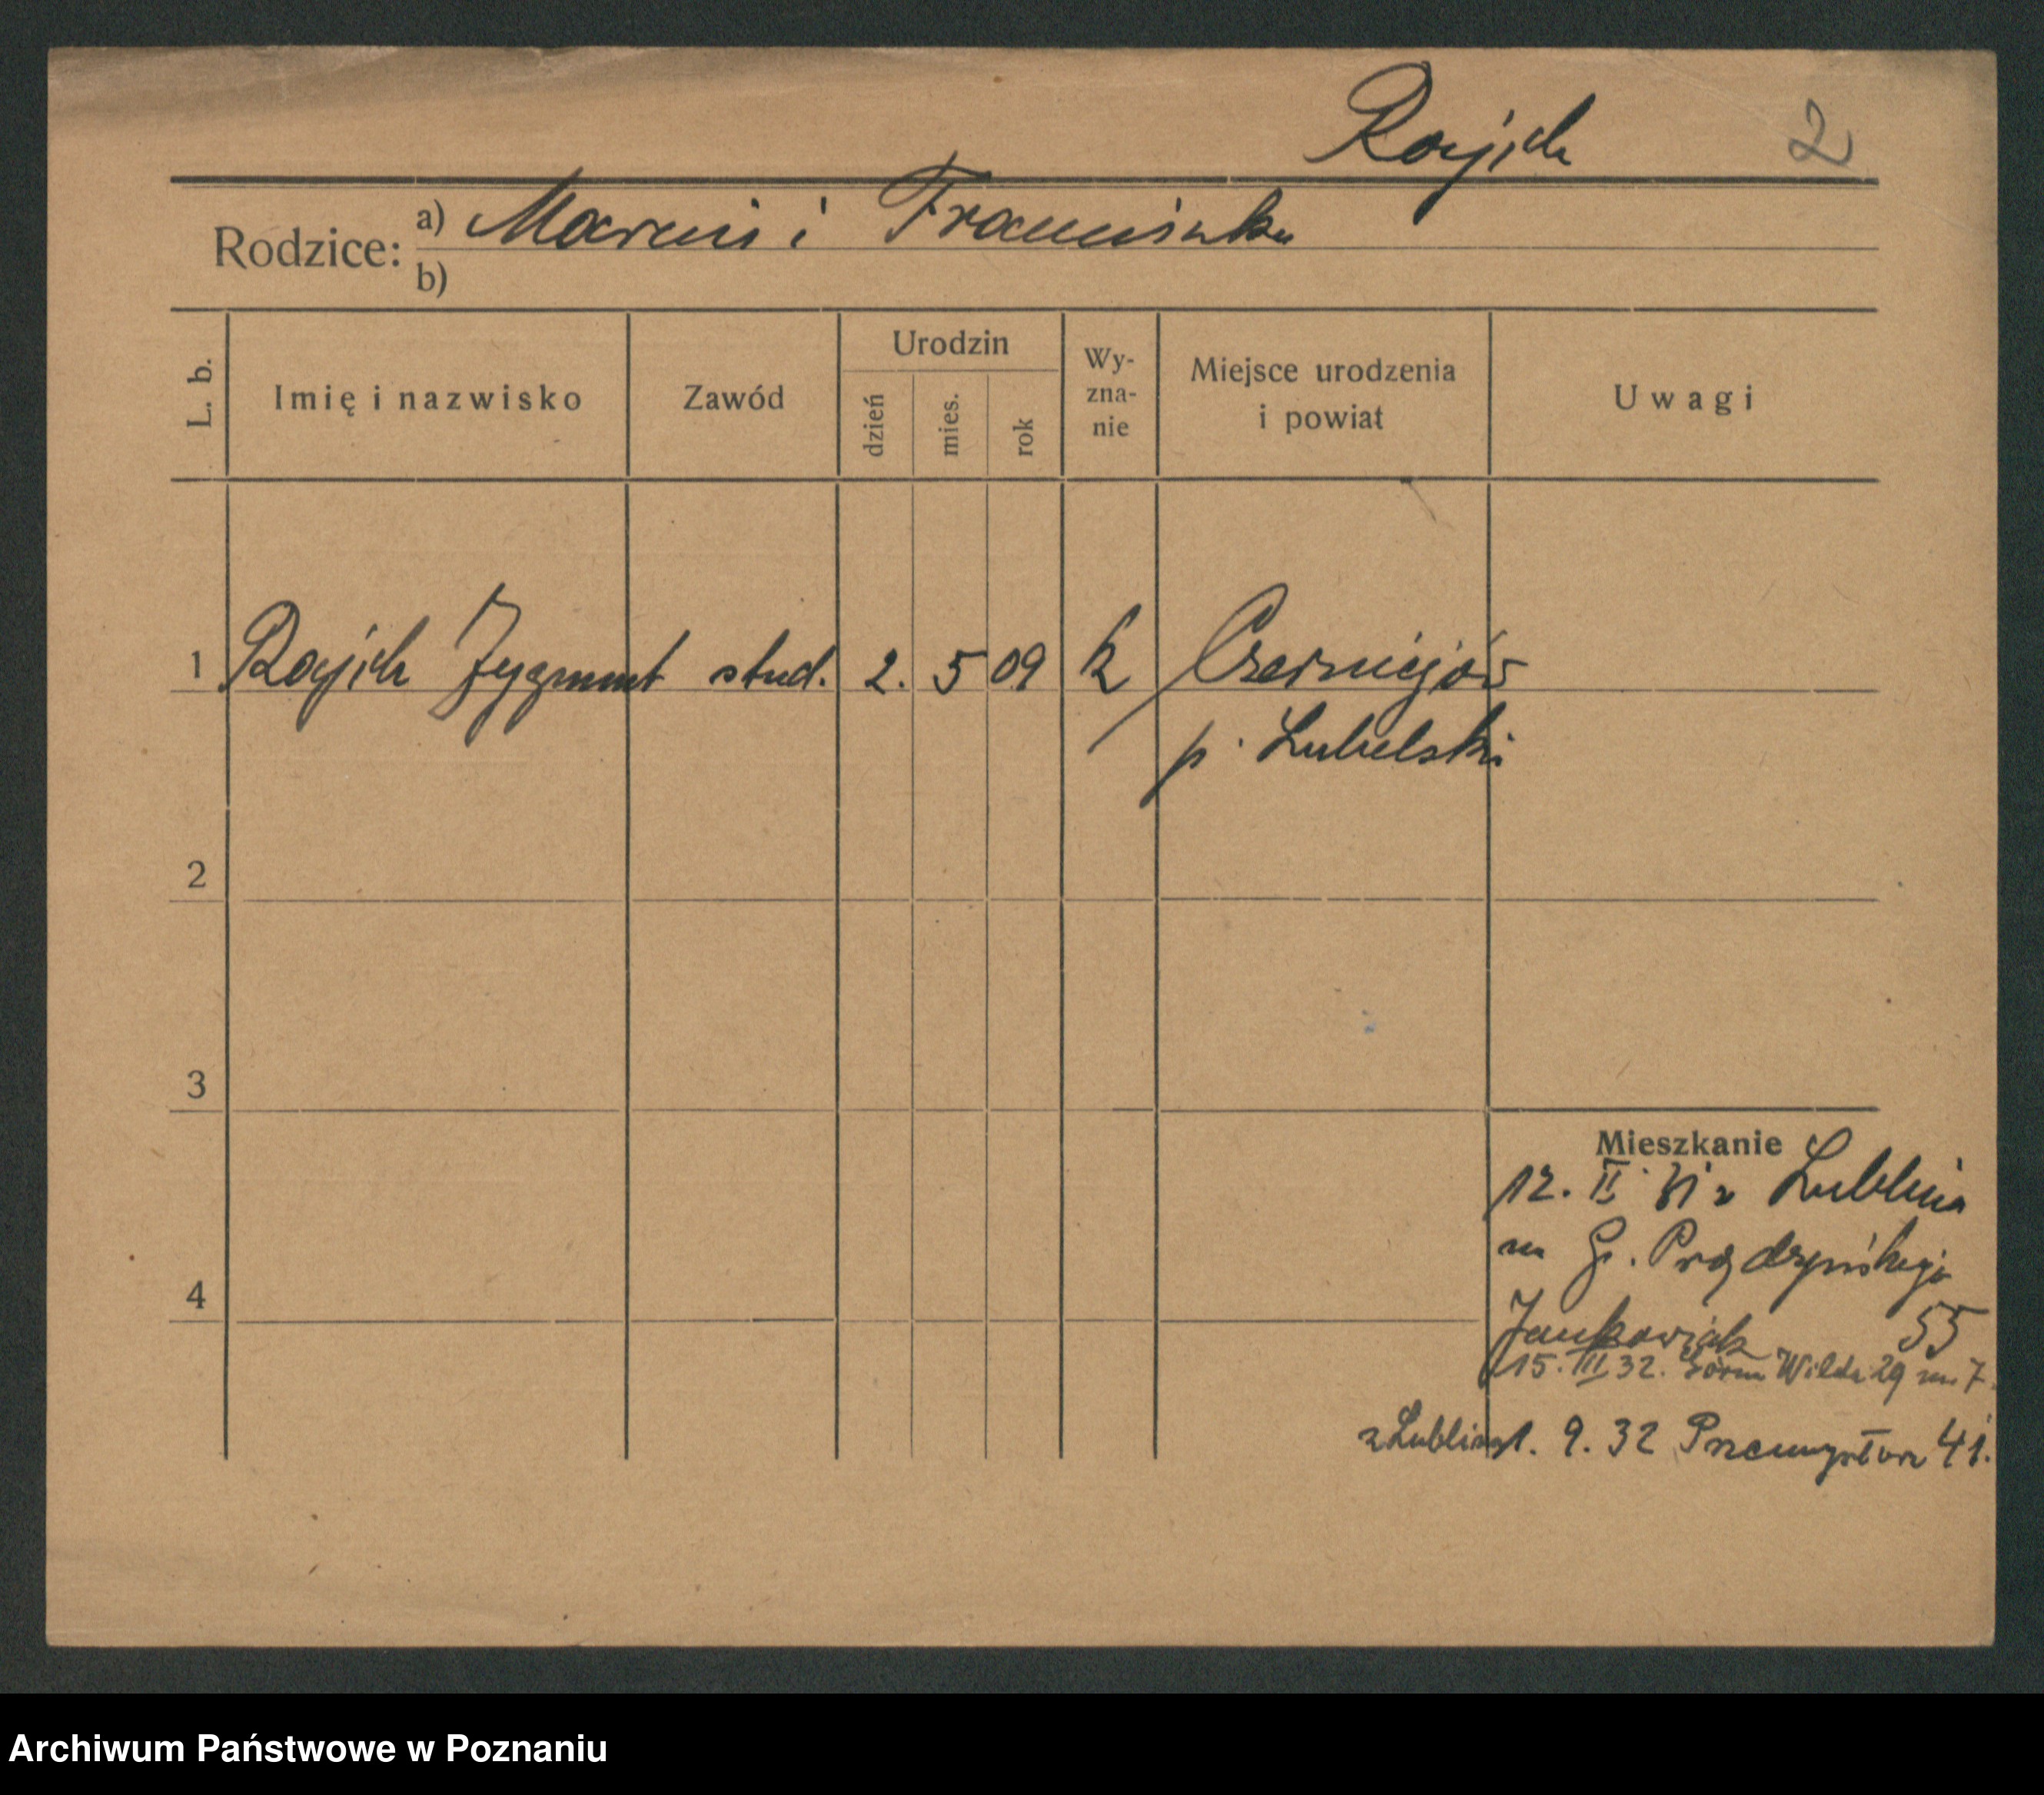 Rajch 2
Rodzice: a) Marcin i Franciszka
b)
L. b. Imię i nazwisko Zawód Urodzin dzień mies. rok Wy-zna-nie Miejsce urodzenia i powiat Uwagi
1 Rajch Zygmunt stud. 2. 5 09 k Czerniejów
p. Lubelski
2
3
Mieszkanie
12. II 31 z Lublina
G. Prądzyńskiego
4
Jankowiak 55
15. III 32. Górna Wilda 29 m. 7.
z Lublina 1. 9. 32 Przemysłowa 41.
Archiwum Państwowe w Poznaniu